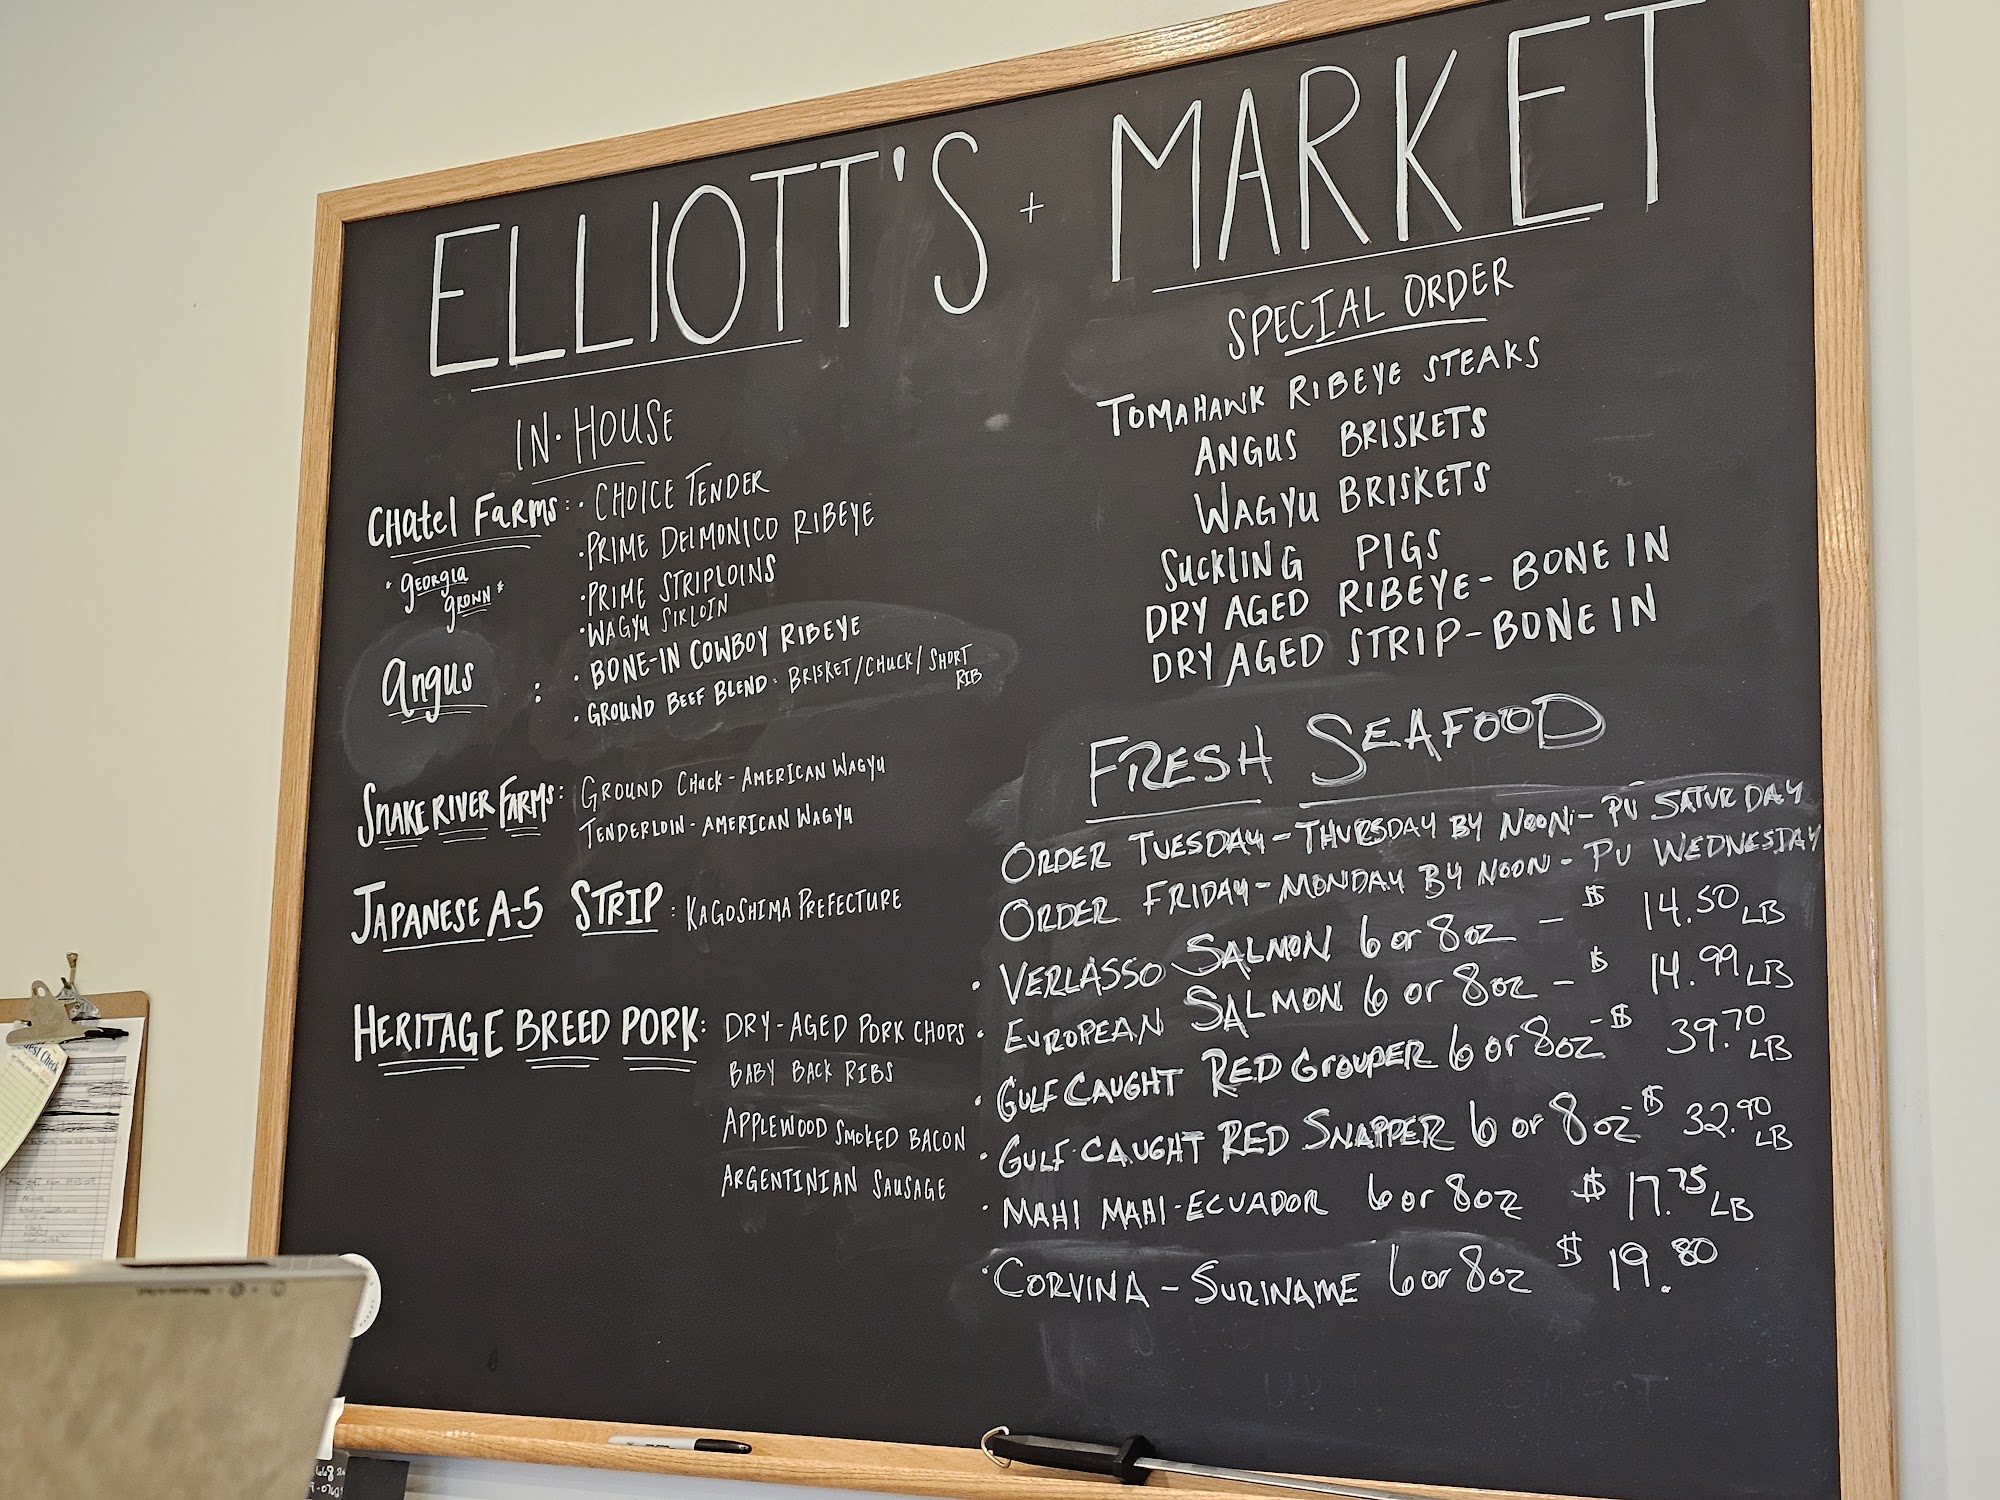 ELLIOTT'S + MARKET
IN·HOUSE
CHATEL FARMS: · CHOICE TENDER
* GEORGIA
GROWN *
· PRIME DELMONICO RIBEYE
· PRIME STRIPLOINS
· WAGYU SIRLOIN
ANGUS : · BONE-IN COWBOY RIBEYE
· GROUND BEEF BLEND: BRISKET/CHUCK/SHORT
RIB
SNAKE RIVER FARMS: GROUND CHUCK - AMERICAN WAGYU
TENDERLOIN - AMERICAN WAGYU
JAPANESE A-5 STRIP: KAGOSHIMA PREFECTURE
HERITAGE BREED PORK: DRY-AGED PORK CHOPS
BABY BACK RIBS
APPLEWOOD SMOKED BACON
ARGENTINIAN SAUSAGE
SPECIAL ORDER
TOMAHAWK RIBEYE STEAKS
ANGUS BRISKETS
WAGYU BRISKETS
SUCKLING PIGS
DRY AGED RIBEYE - BONE IN
DRY AGED STRIP - BONE IN
FRESH SEAFOOD
ORDER TUESDAY - THURSDAY BY NOON - PU SATURDAY
ORDER FRIDAY - MONDAY BY NOON - PU WEDNESDAY
· VERLASSO SALMON 6 or 8oz - $ 14.50 LB
· EUROPEAN SALMON 6 or 8oz - $ 14.99 LB
· GULF CAUGHT RED GROUPER 6 or 8oz - $ 39.70 LB
· GULF CAUGHT RED SNAPPER 6 or 8oz - $ 32.90 LB
· MAHI MAHI - ECUADOR 6 or 8oz $ 17.75 LB
· CORVINA - SURINAME 6 or 8oz $ 19.80